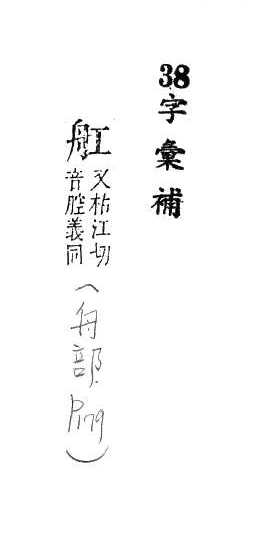 38字彙補
舡 又枯江切
音腔義同
(舟部
P.179)